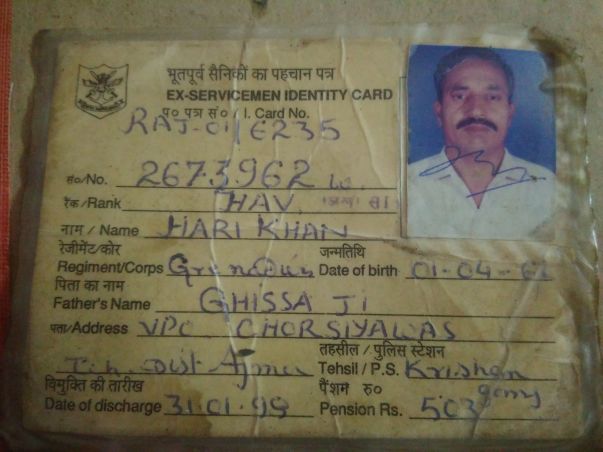 भूतपूर्व सैनिकों का पहचान पत्र
EX-SERVICEMEN IDENTITY CARD
प० पत्र सं० / I. Card No.
RAJ-01/6235
सं०/No. 2673962
रैंक/Rank HAV
नाम / Name HARI KHAN
रेजीमेंट/कोर जन्मतिथि
Regiment/Corps Date of birth 01-04-
पिता का नाम
Father's Name GHISSA JI
पता/Address VPO CHORSIYAWAS
तहसील / पुलिस स्टेशन
Dist Ajmer Tehsil / P.S. Krishan
विमुक्ति की तारीख पैंशम रु०
Date of discharge 31.01.99 Pension Rs. 503